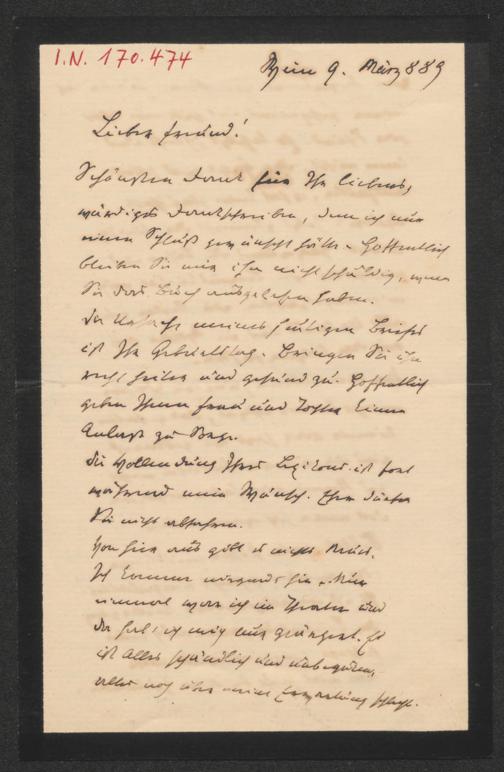 I.N. 170.474
Wien 9. März 889
Lieber Freund!
Schönsten Dank für Ihr liebens-
würdiges Dankschreiben, dem ich nur
einen Schluß gewünscht hätte. Hoffentlich
bleiben Sie mir ihn nicht schuldig, wenn
Sie das Buch ausgelesen haben.
Die Ursache meines heutigen Briefes
ist Ihr Geburtstag. Bringen Sie ihn
recht heiter und gesund zu. Hoffentlich
geben Ihnen Frau und Tochter keinen
Anlaß zur Sorge.
Die Vollendung Ihres ist fort
während mein Wunsch. Eher dürfen
Sie nicht abfahren.
Von hier aus gibt es nichts Neues.
Ich komme nirgends hin. Nur
einmal war ich im Theater und
da hab' ich mich nur geärgert. Es
ist Alles schändlich und unbequem,
alles noch über meine Erwartung schlecht.